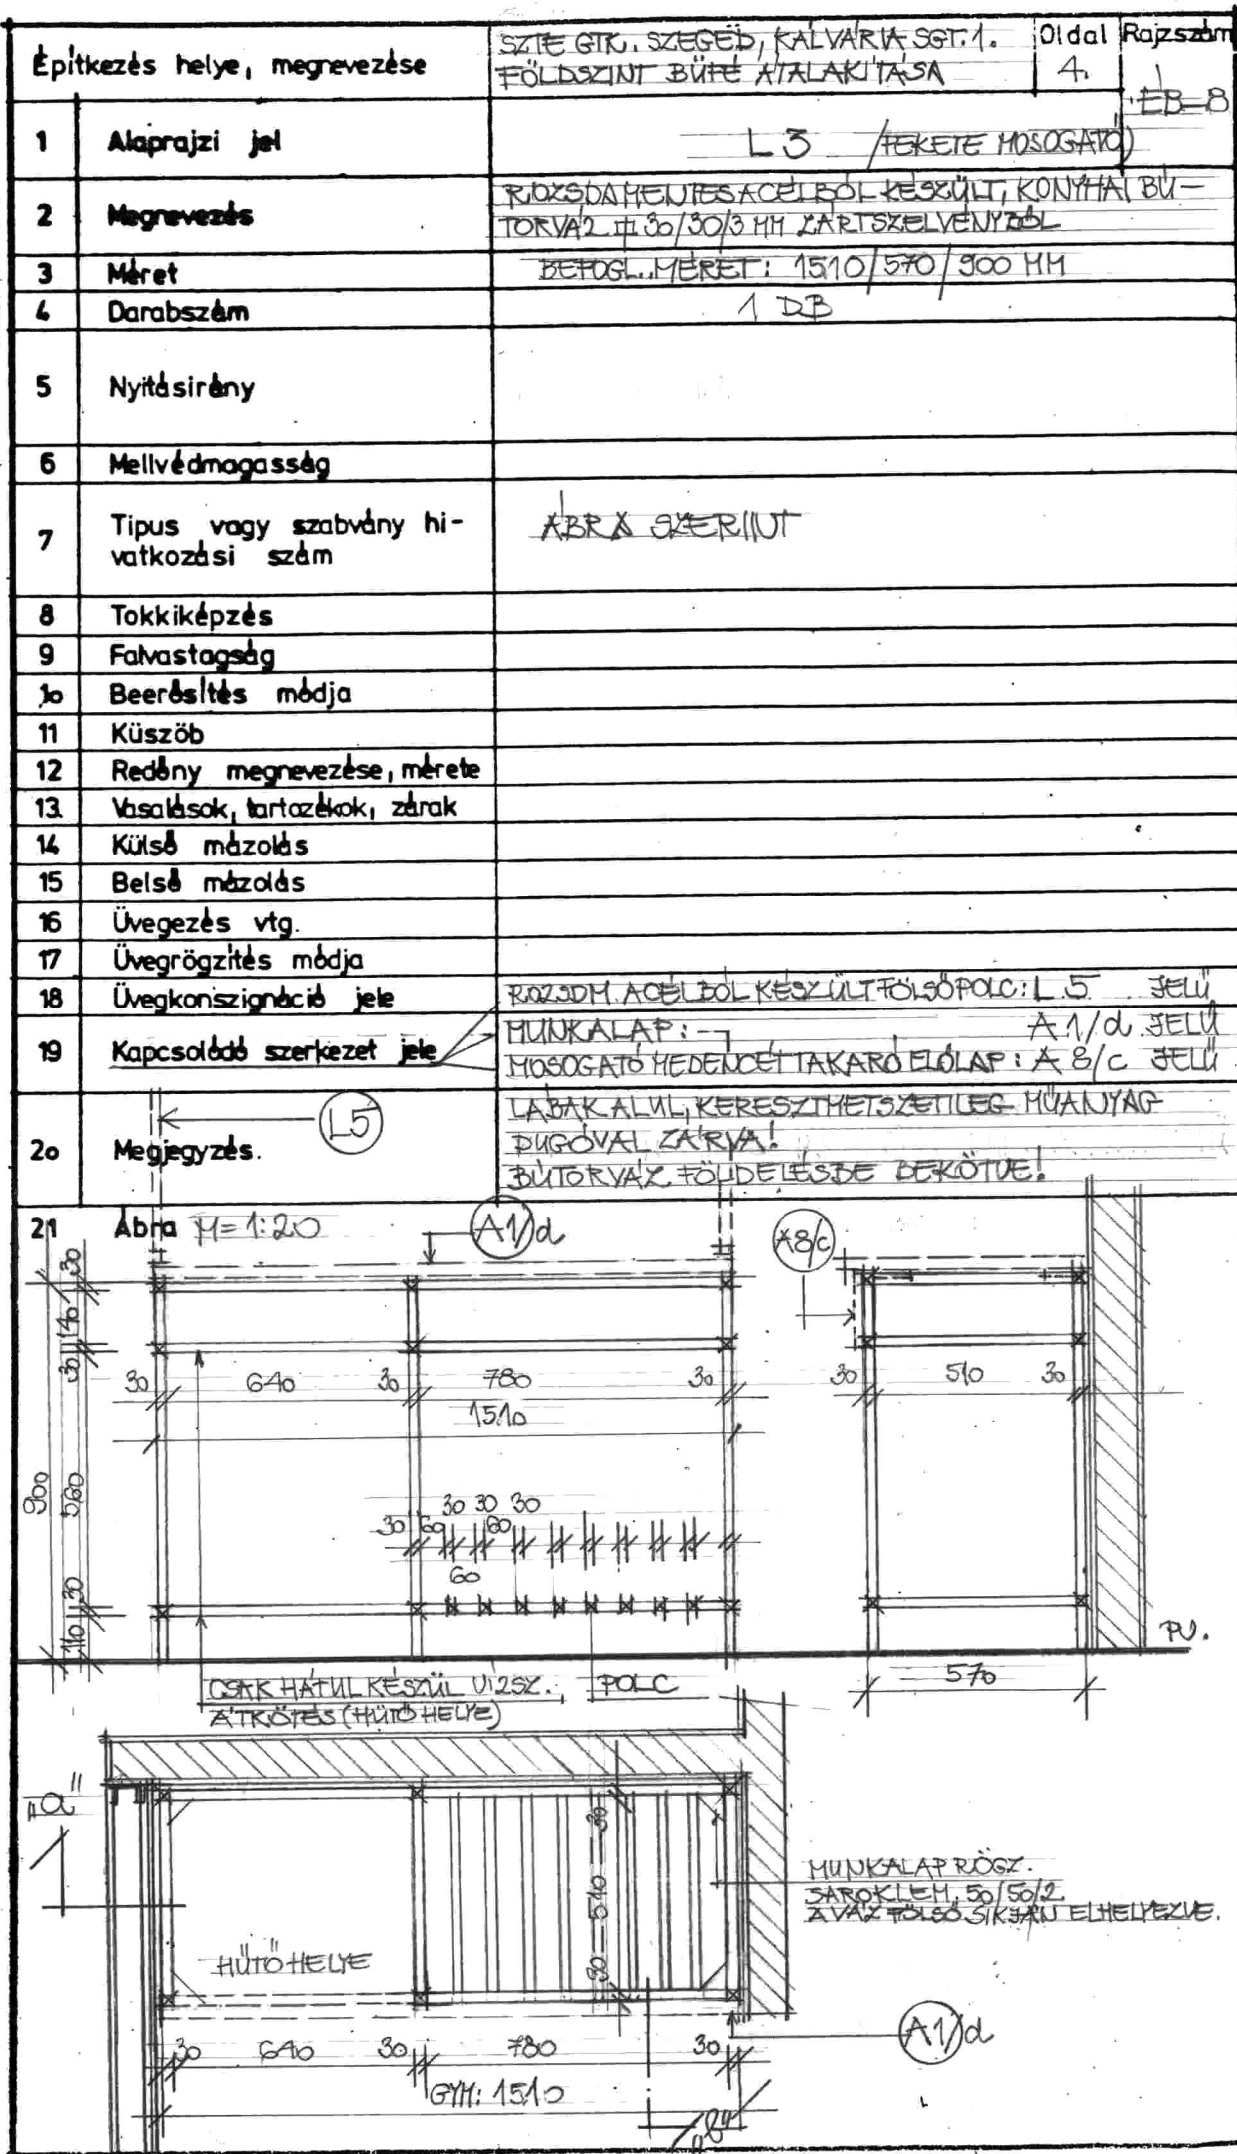 Építkezés helye, megnevezése
SZTE GTK. SZEGED, KÁLVÁRIA SGT. 1.
FÖLDSZINT BÜFÉ ÁTALAKÍTÁSA
Oldal
4.
Rajzszám
ÉB-8
1 Alaprajzi jel L3 /FEKETE MOSOGATÓ)
2 Megnevezés ROZSDAMENTES ACÉLBÓL KÉSZÜLT, KONYHAI BÚ-
TORVÁZ 30/30/3 MM ZÁRTSZELVÉNYBŐL
3 Méret BEFOGL. MÉRET: 1510/570/900 MM
4 Darabszám 1 DB
5 Nyitásirány
6 Mellvédmagasság
7 Tipus vagy szabvány hi-
vatkozási szám
ÁBRA SZERINT
8 Tokkiképzés
9 Falvastagság
1o Beerősítés módja
11 Küszöb
12 Redőny megnevezése, mérete
13. Vasalások, tartozékok, zárak
14 Külső mázolás
15 Belső mázolás
16 Üvegezés vtg.
17 Üvegrögzítés módja
18 Üvegkonszignáció jele ROZSDM. ACÉLBÓL KÉSZÜLT FÖLSŐ POLC: L5 JELŰ
19 Kapcsolódó szerkezet jele MUNKALAP: A1/d JELŰ
MOSOGATÓ MEDENCÉT TAKARÓ ELŐLAP: A 8/c JELŰ
L5
2o Megjegyzés. LÁBAK ALUL, KERESZTMETSZETILEG MŰANYAG
DUGÓVAL ZÁRVA!
BÚTORVÁZ FÖLDELÉSBE BEKÖTVE!
21 Ábra M=1:20
A1/d
A8/c
30
140
30
30 640 30 780 30
30 510 30
1510
900
560
30 30 30
30 60 60
60
30
110
PV.
570
CSAK HÁTUL KÉSZÜL VÍZSZ.
ÁTKÖTÉS (HŰTŐ HELYE)
POLC
"a"
30 510 30
MUNKALAP RÖGZ.
SAROKLEM. 50/50/2
A VÁZ FÖLSŐ SÍKJÁN ELHELYEZVE.
HŰTŐ HELYE
A1/d
30 640 30 780 30
GYM: 1510
"B"